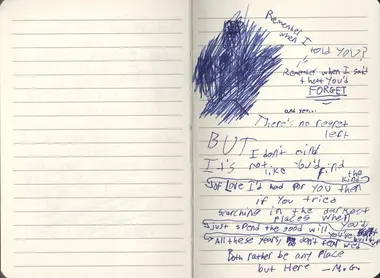 Remember
when I
told YOU?
Remember when I said
that you'd
FORGET
and yet...
There's no regret
left
BUT I don't mind
It's not like you'd find
the kind
of Love I'd had for you then
if you tried
searching in the darkest
places when
you'd
just spend the good will you've built
All these years, don't
Both rather be any place
but Here - M.G.